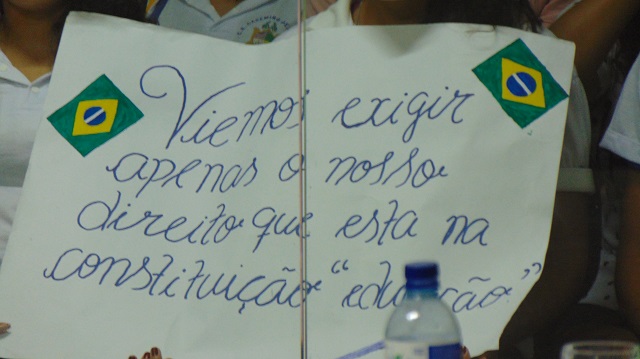 Viemos exigir
apenas o nosso
direito que esta na
constituição "educação"